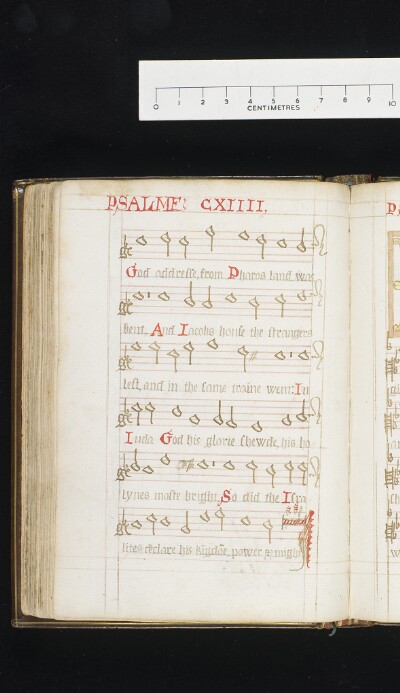 0 1 2 3 4 5 6 7 8 9 10
CENTIMETRES
PSALME CXIIII.
God addresse, from Pharos land was
bent, And Iacobs house the strangers
left, and in the same traine went: In
Iuda God his glorie shewde, his ho
lynes moste bright, So did the Isra
lites declare his kingdõe, power & might